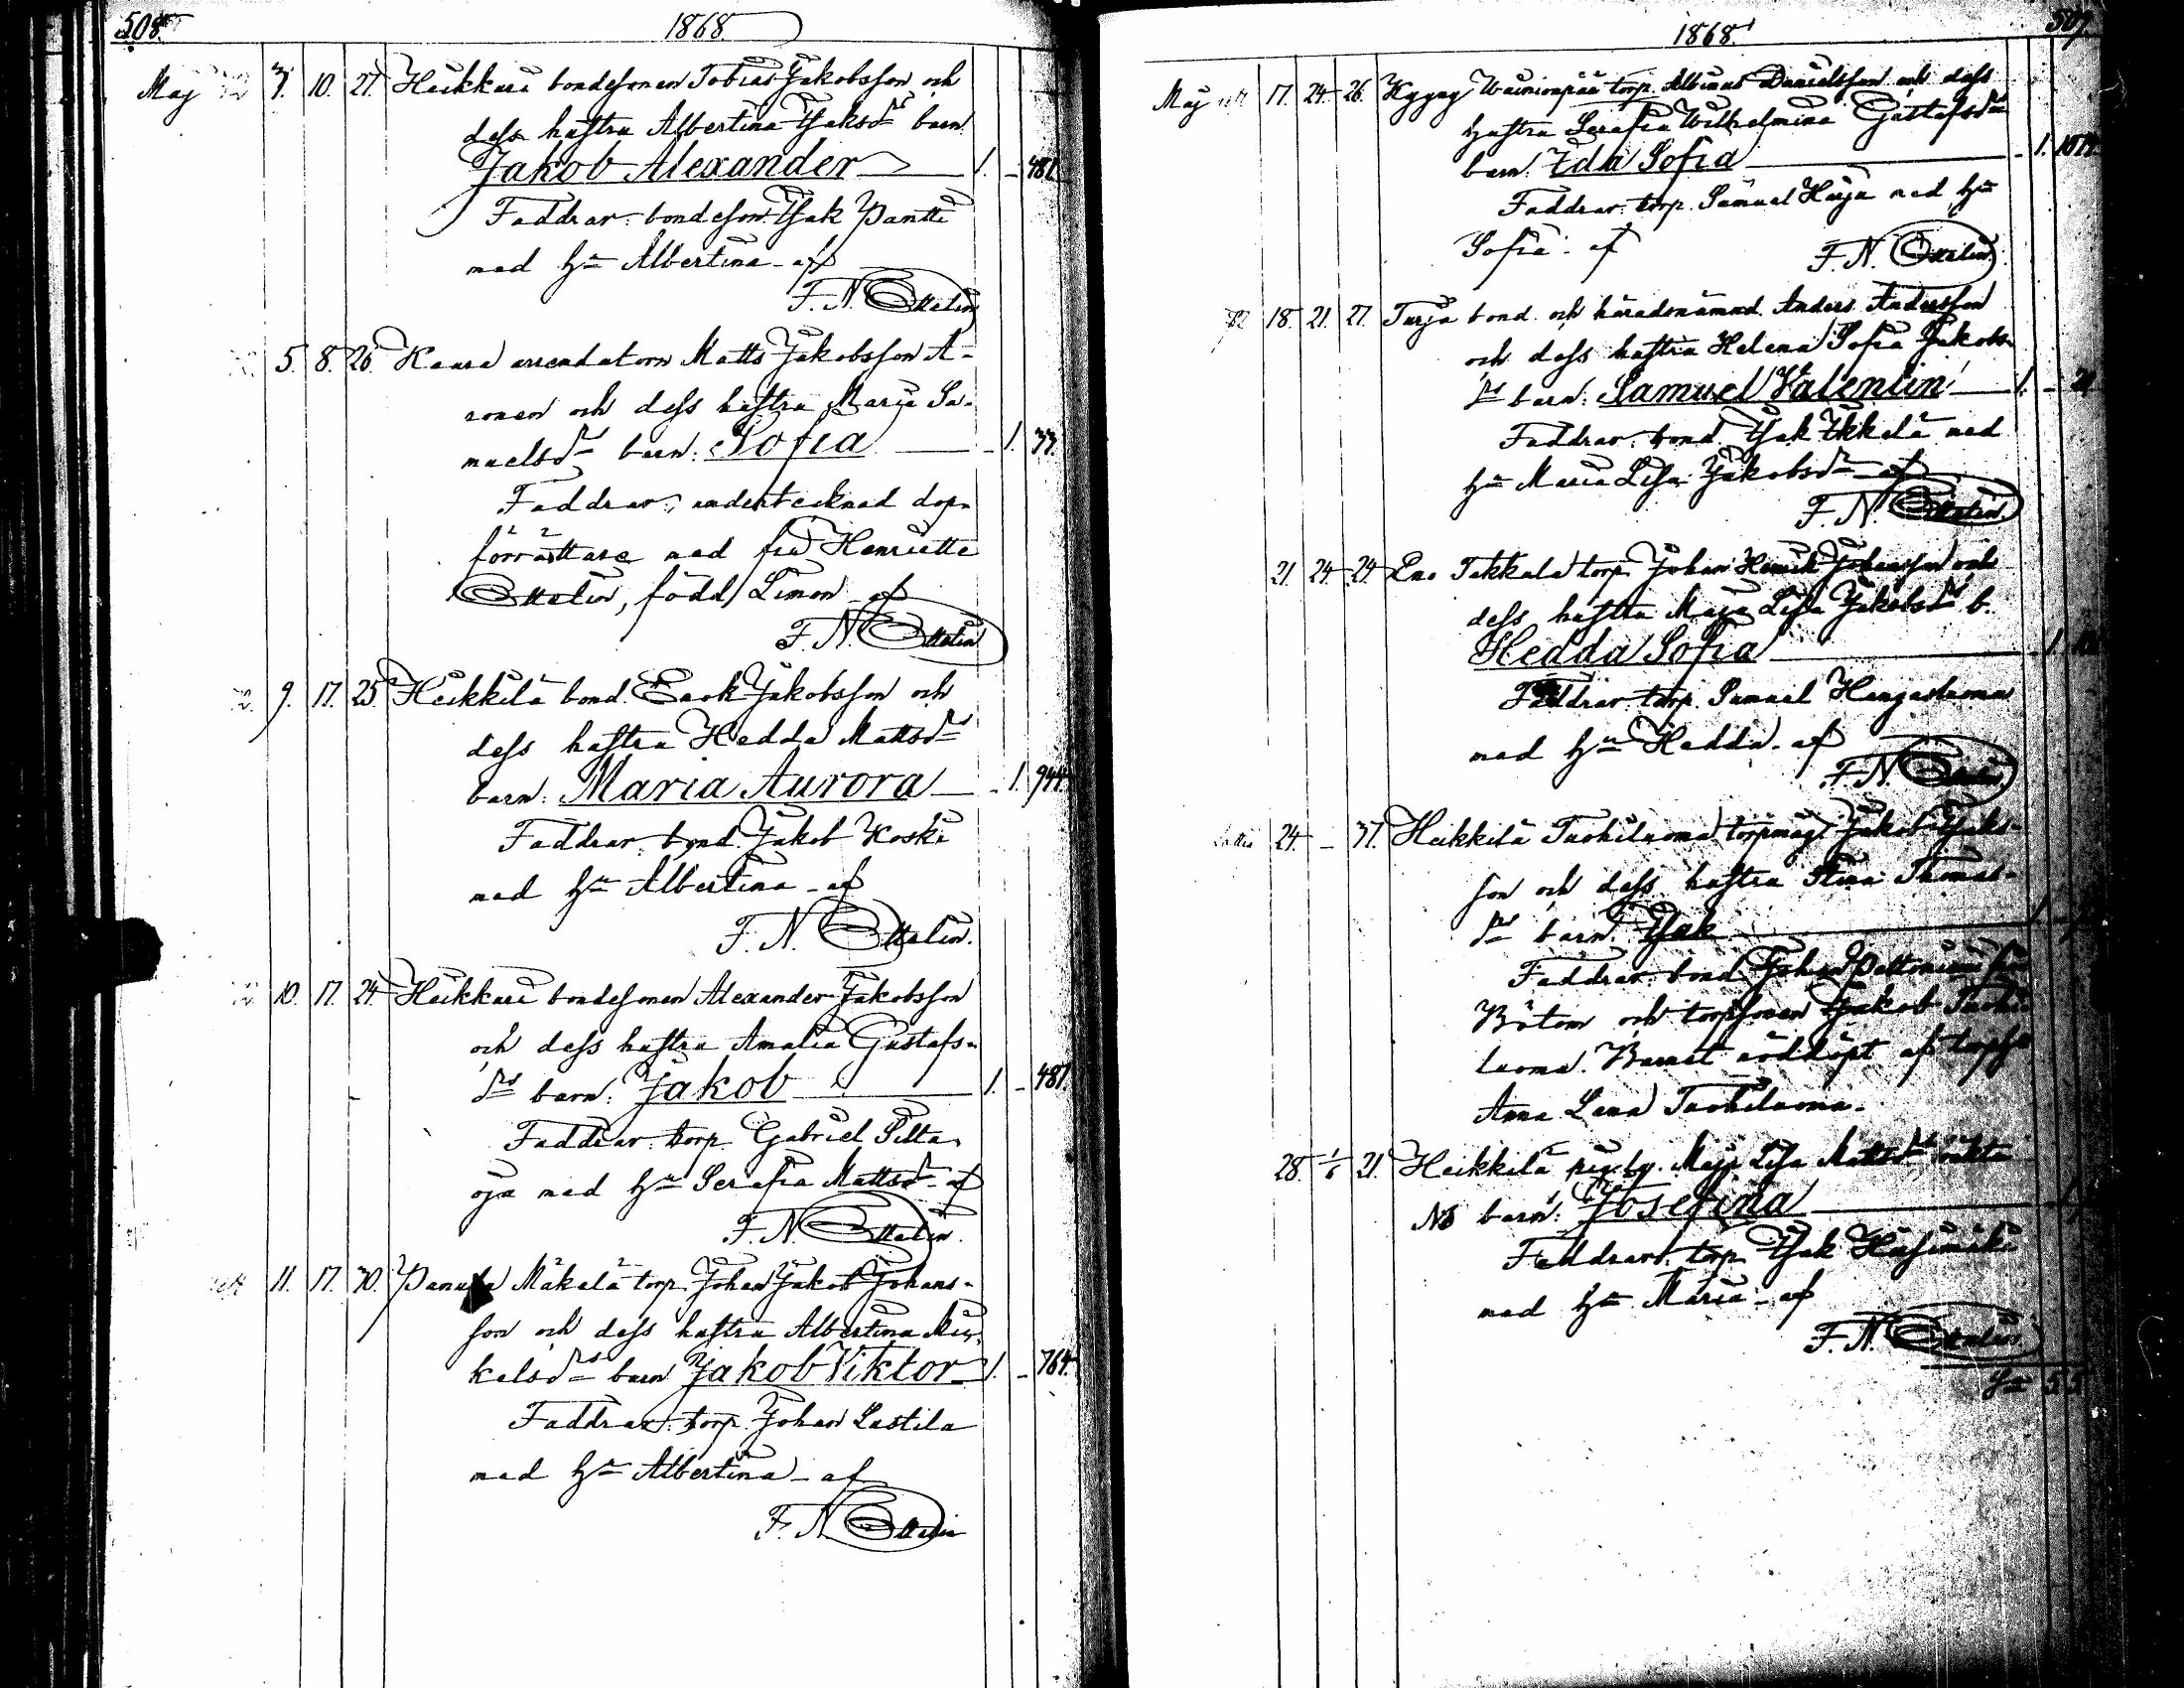 508.
1868.
Maj 3. 10. 27. Heikkari bondesonen Tobias Jakobsson och
dess hustru Albertina Isaksdrs barn
Jakob Alexander 1. – 481.
Faddrar: bondeson Isak Pantti
med hu Albertina – af
F. N.
5. 8. 26. Kaura arrendatorn Matts Jakobsson A-
ronen och dess hustru Maria Sa-
muelsdrs barn: Sofia – 1. 33.
Faddrar: undertecknad dop-
förrättare med fru Henriette
född Limon – af
F. N.
9. 17. 25. Heikkilä bond. Enok Jakobsson och
dess hustru Hedda Mattsdrs
barn: Maria Aurora – 1. 944.
Faddrar: bond. Jakob Koski
med hu Albertina – af
F. N.
10. 17. 24. Heikkari bondesonen Alexander Jakobsson
och dess hustru Amalia Gustafs-
drs barn: Jakob 1. – 481.
Faddrar: torp. Gabriel Pilta
oja med hu Serafia Mattsdr – af
F. N.
11. 17. 30. Panula Mäkelä torp. Johan Jakob Johans-
son och dess hustru Albertina Mi-
kelsdrs barn Jakob Viktor 1. – 764.
Faddrar: torp. Johan Lastila
med hu Albertina – af
F. N.
1868.
507.
Maj 17. 24. 26. Wainionpää torp. Albinus Danielsson och dess
hustru Serafia Wilhelmina Gustafsdrs
barn: Ida Sofia – 1.
Faddrar: torp. Samuel Harja med hu
Sofia – af
F. N.
18. 21. 27. Turja bond. och häradsnämnd. Anders Andersson
och dess hustru Helena Sofia Jakobs-
drs barn: Samuel Valentin 1. –
Faddrar: bond. Isak Ikkelä med
hu Maria Lisa Jakobsdr – af
F. N.
21. 24. 29. Eno Takkala torp. Johan Henrik Johansson och
dess hustru Maja Lisa Jakobsdrs b.
Hedda Sofia – 1.
Faddrar: torp. Samuel Hangasluoma
med hu Hedda – af
F. N.
24. – 37. Heikkilä Tuohiluoma torpmåg Jakob Isaks-
son och dess hustru Stina Thomas-
drs barn: Isak
Faddrar: bond. Johan Peltoniemi från
Bötom och torpsonen Jakob Tuohi-
luoma. Barnet nöddöpt af
Anna Lena Tuohiluoma.
28. 1/6 21. Heikkilä Maja Lisa Mattsdrs oäkta
barn: Josefina
Faddrar: torp. Isak
med hu Maria – af
F. N.